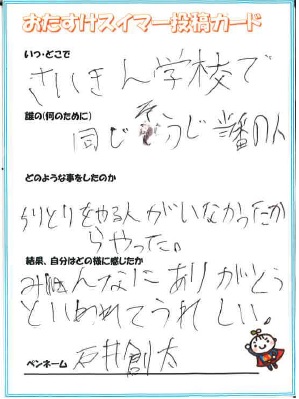 おたすけスイマー投稿カード
いつ・どこで
さいきん学校で
誰の(何のために)
同じそうじ当番の人
どのような事をしたのか
ちりとりをやる人がいなかったか
らやった。
結果、自分はどの様に感じたか
みんなにありがとう
といわれてうれしい。
ペンネーム 石井創太